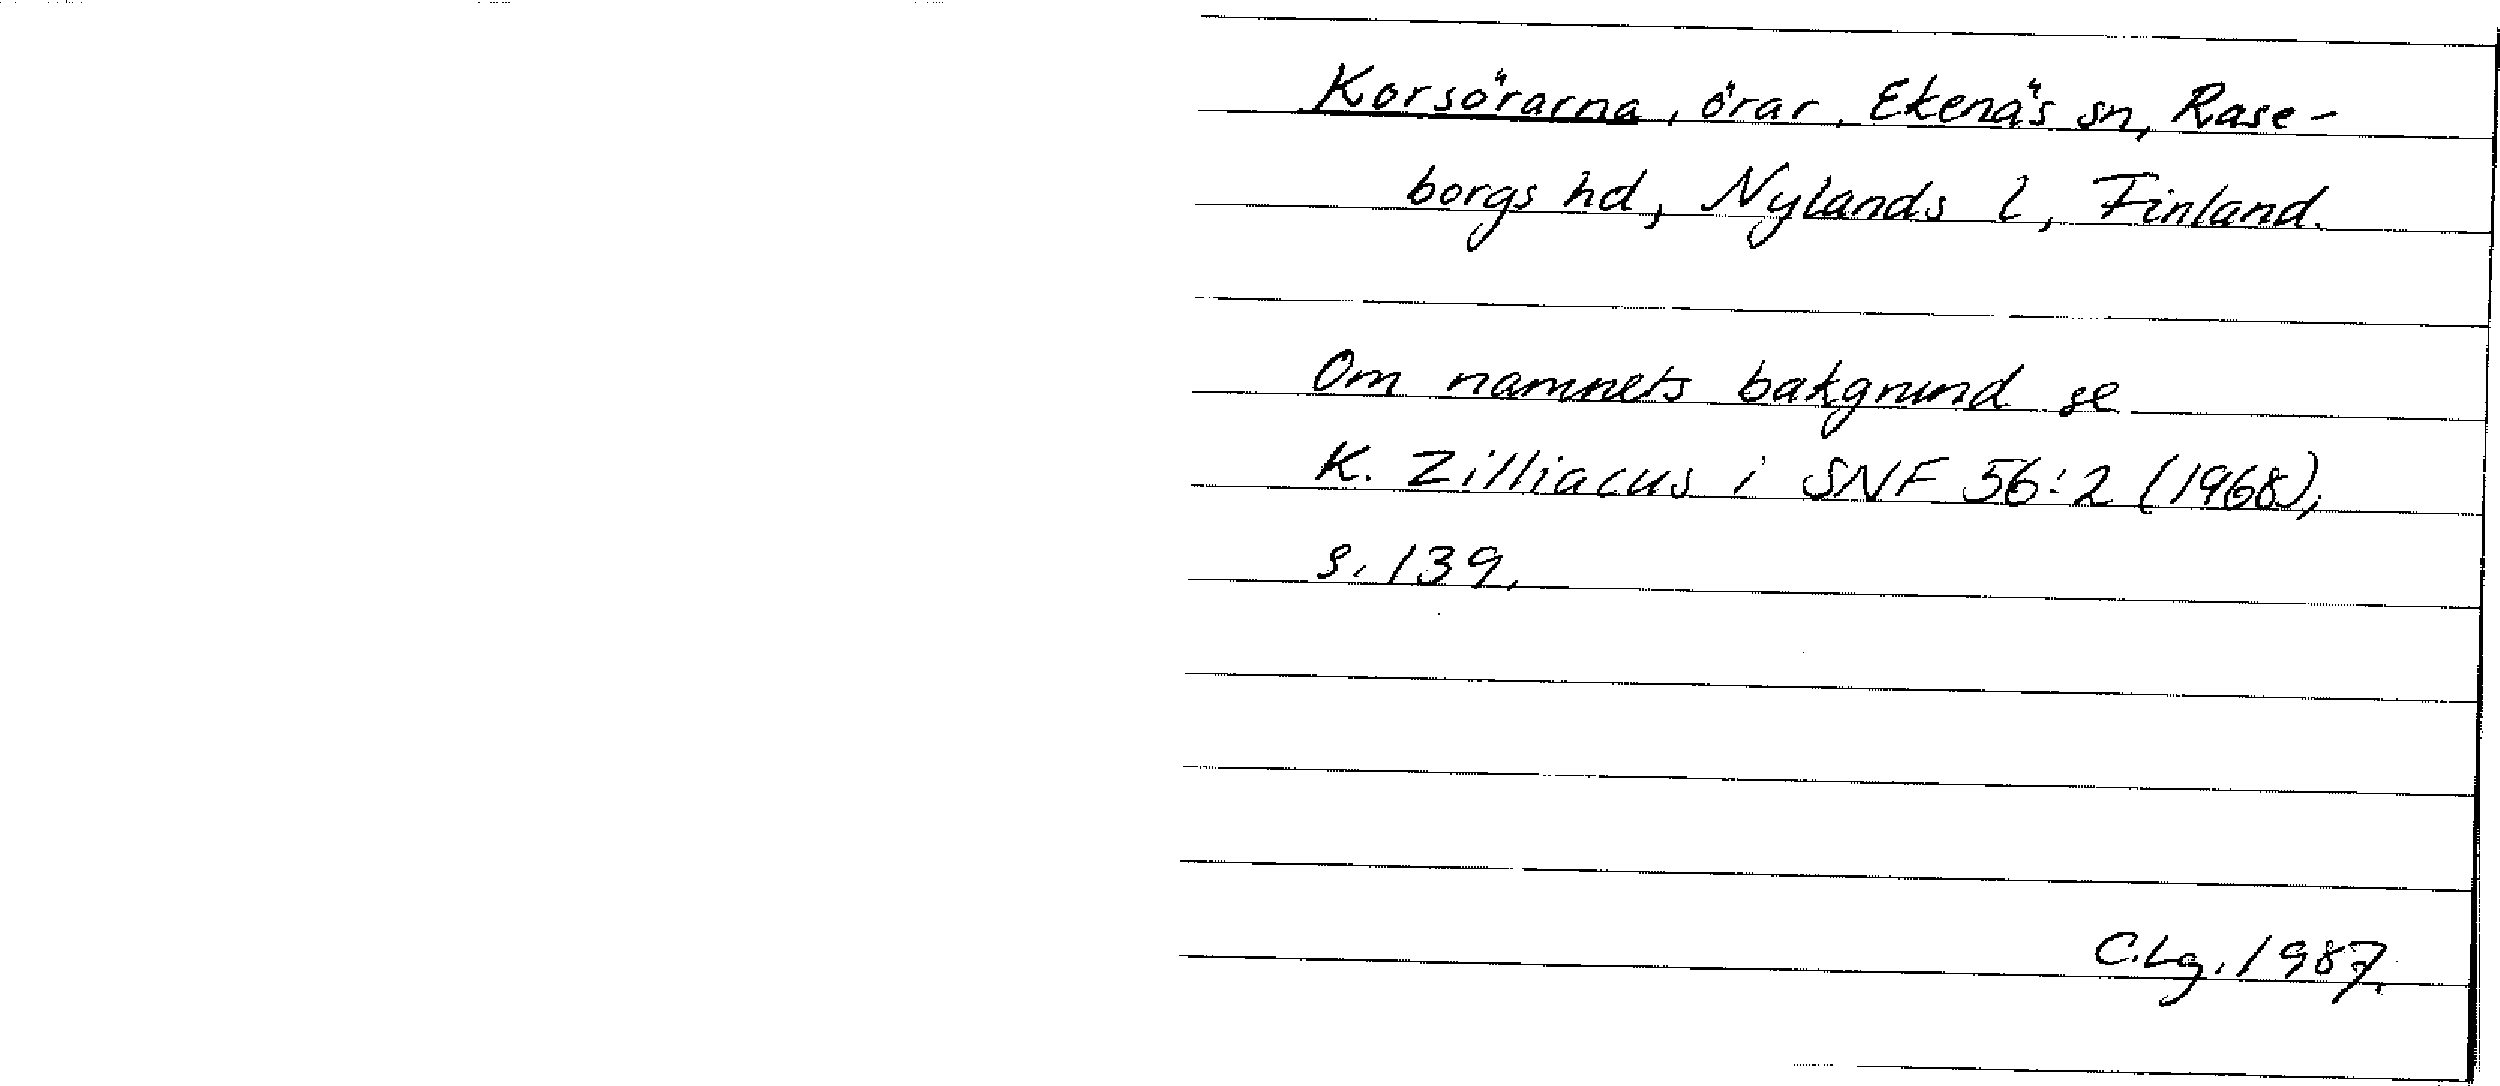 Korsörarna, örar, Ekenäs sn, Rase-
borgs hd, Nylands l, Finland.
Om namnets bakgrund se
K. Zilliacus i SNF 56:2 (1968),
s. 139.
C.Lg. 1987.